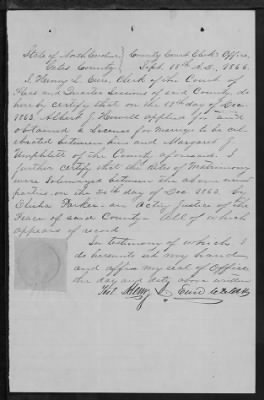 State of North Carolina } County Court Clerk's Office,
Gates County } Sept. 18th A.D., 1866.
I, Henry L. Eure, Clerk of the Court of
Pleas and Quarter Sessions of said County, do
hereby certify that on the 19th day of Dec.
1863 Albert J. applied for and
obtained a License for marriage to be cel-
ebrated between him and Margaret J.
Umphlett of the County aforesaid. I
further certify that the Rites of Matrimony
were Solemnized between the above named
parties, on the 24th day of Dec 1863, by
Elisha Parker, an acting Justice of the
Peace of said County. All of which
appears of record.
In testimony of which, I
do hereunto set my hand
and affix my seal of Office
the day and date above written
Henry L. Eure